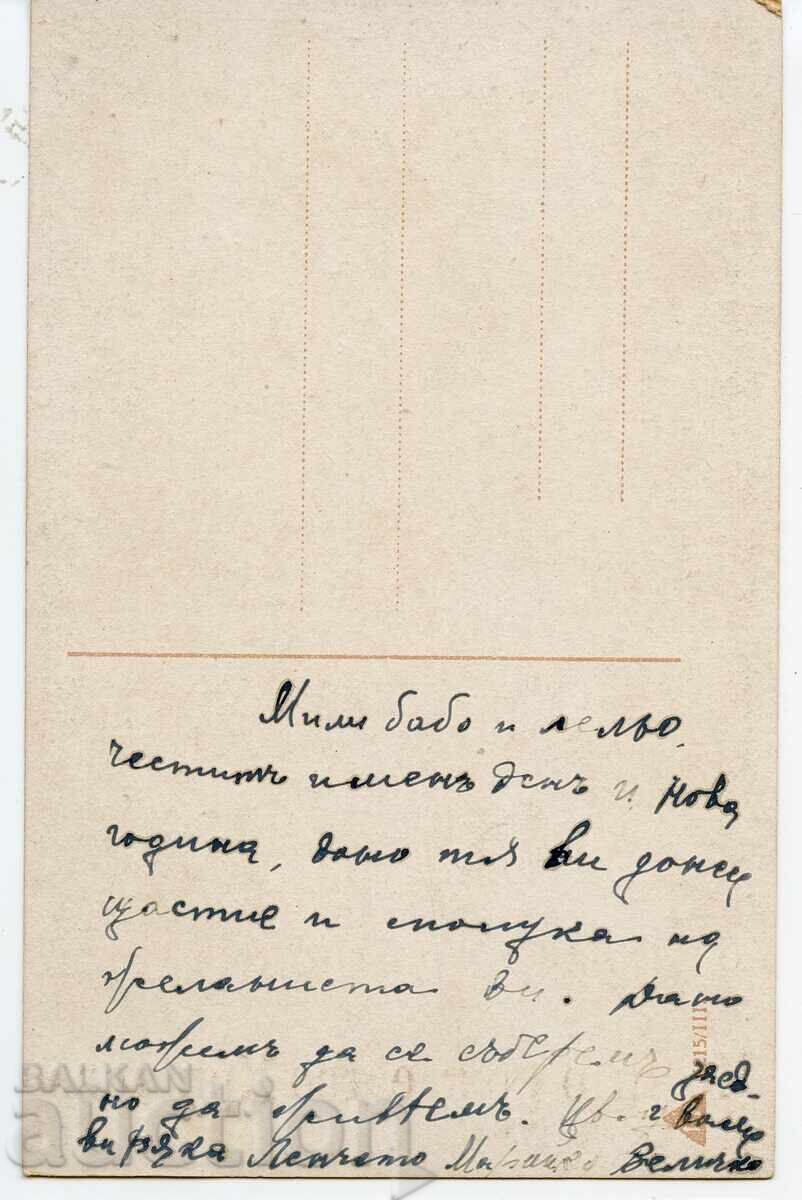 Мили бабо и лельо,
честитъ именъ денъ и Нова
година, дано тя ви донесе
щастие и сполука на
желанията ви. Дано
можемъ да се съберемъ заед-
но да живѣемъ.
ви рѫка Ленчето Величко
215/III
BALKAN
auction